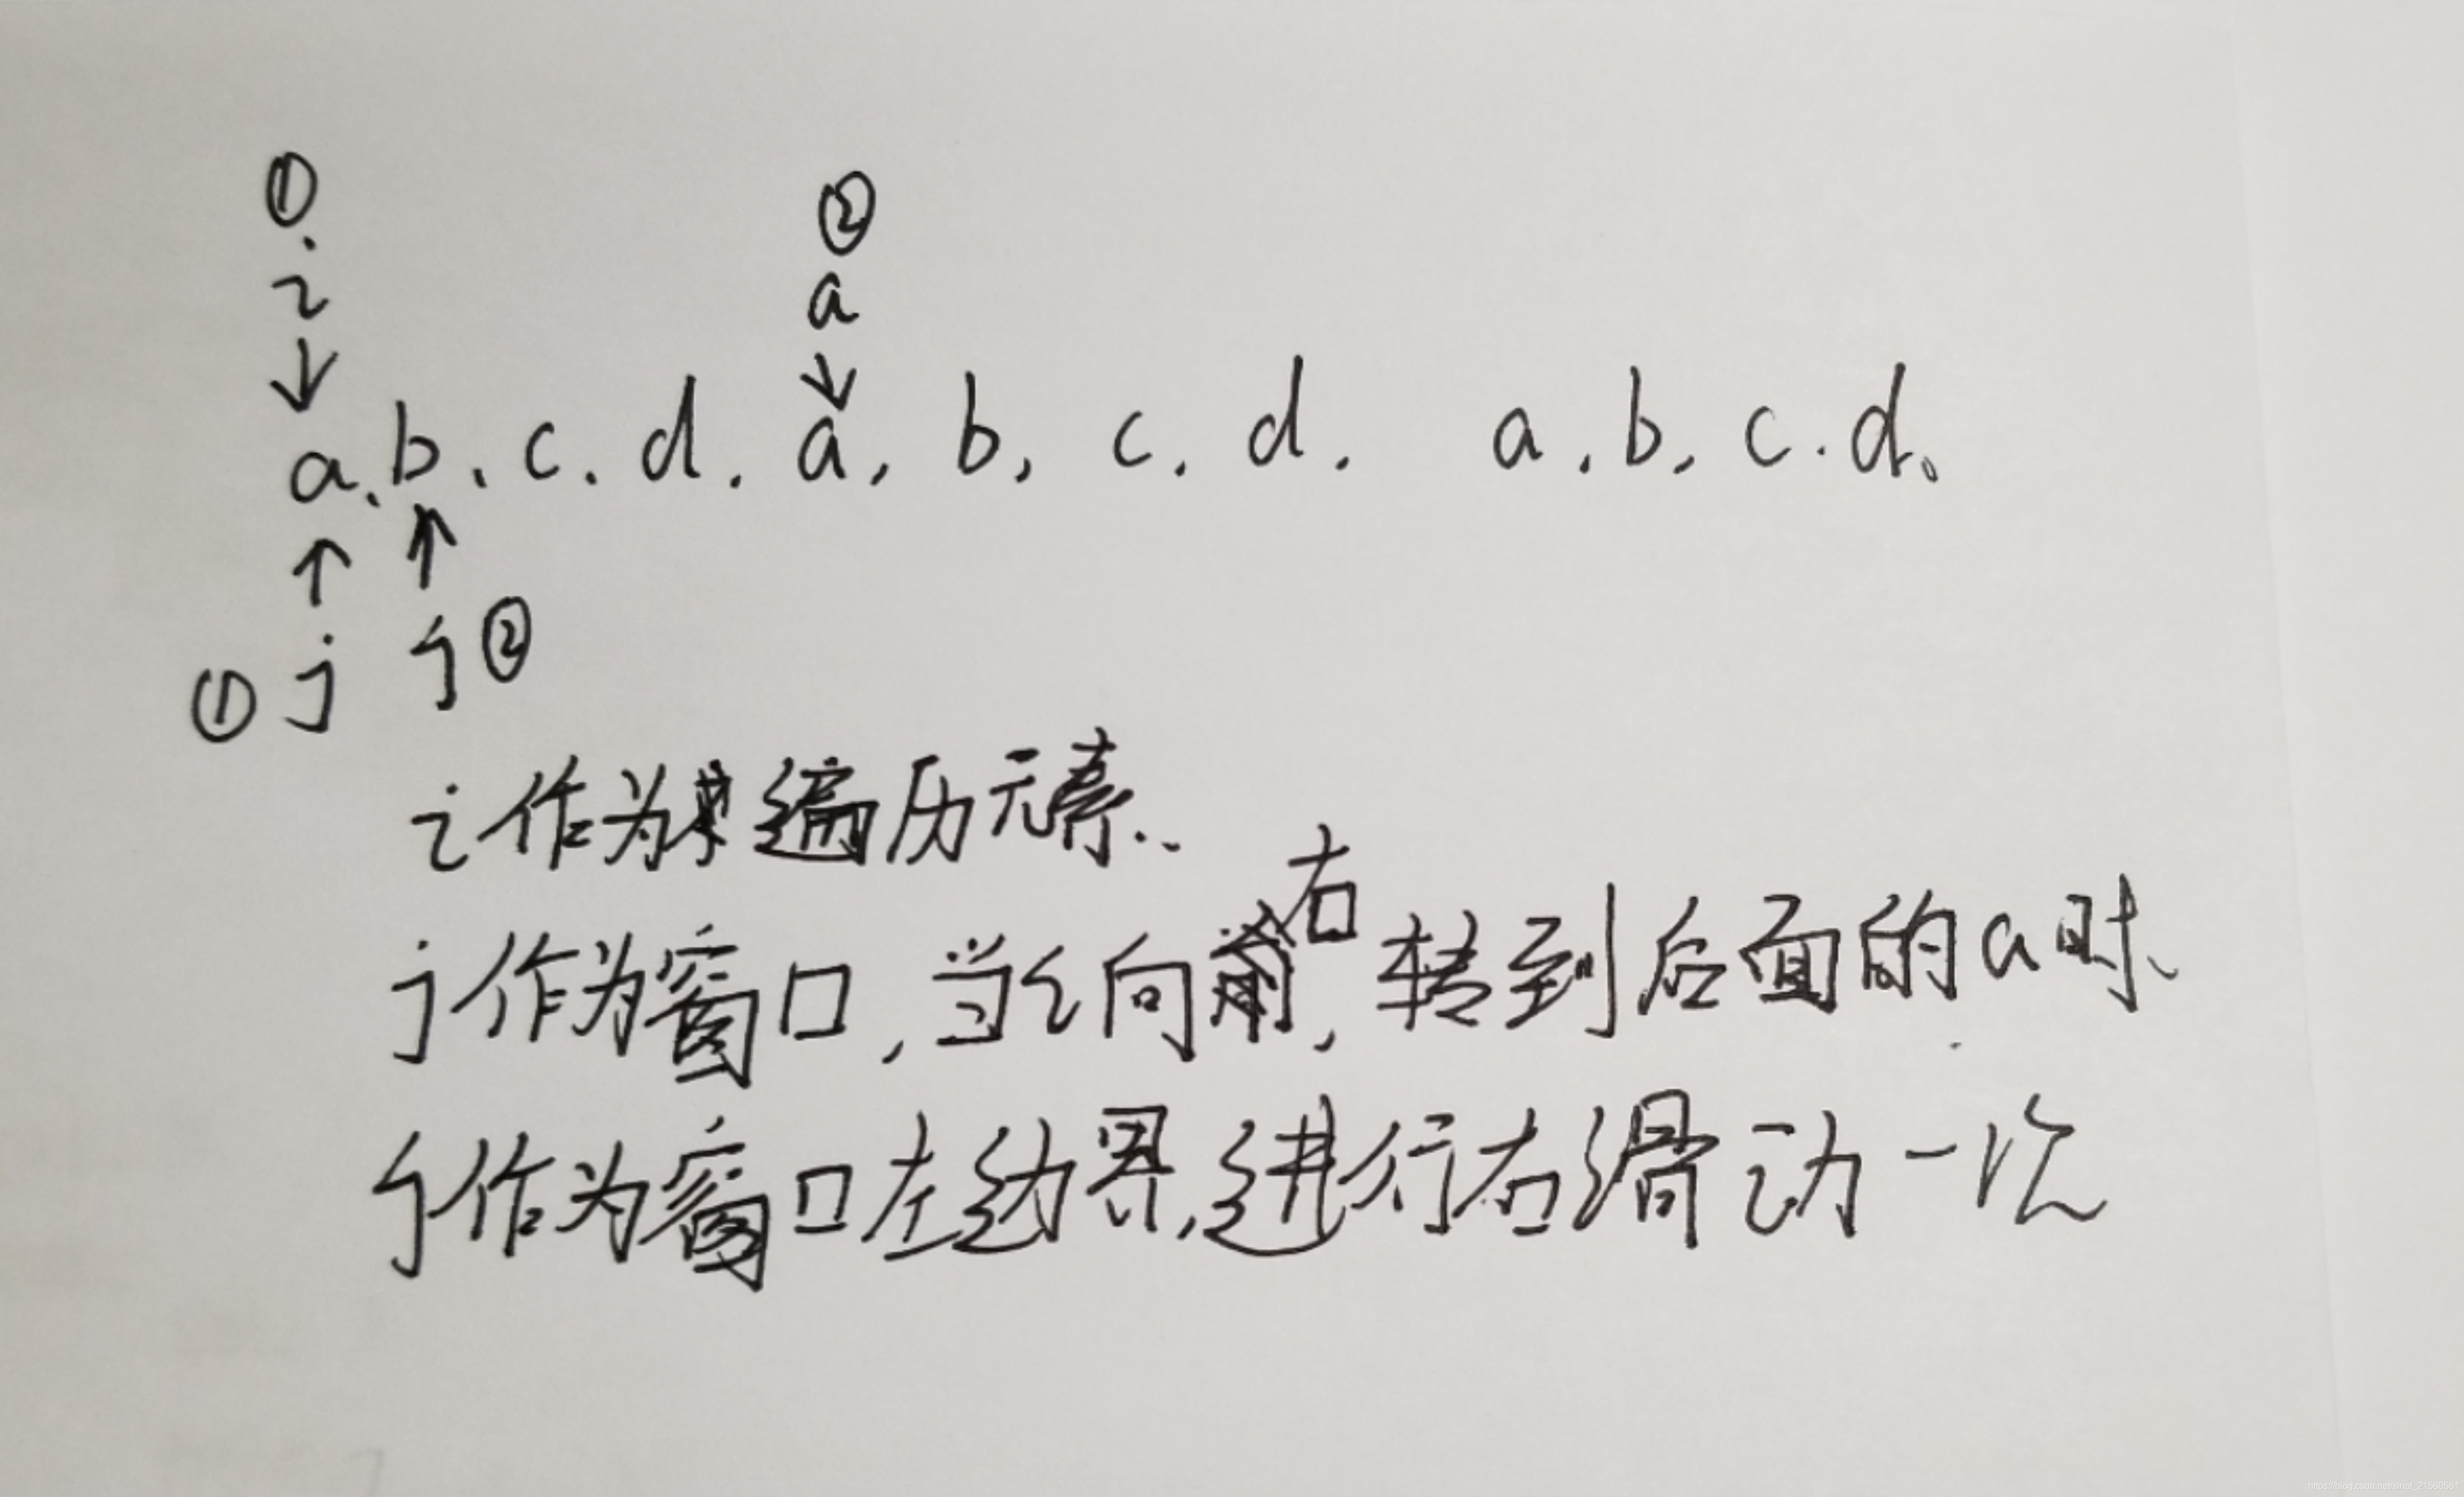 ① ②
i a
↓ ↓
a. b. c. d. a, b, c. d. a. b, c. d、
↑ ↑
① j j ②
i作为遍历元素..
j作为窗口,当i向右,转到后面的a时、
j作为窗口左边界,进行右滑动一次